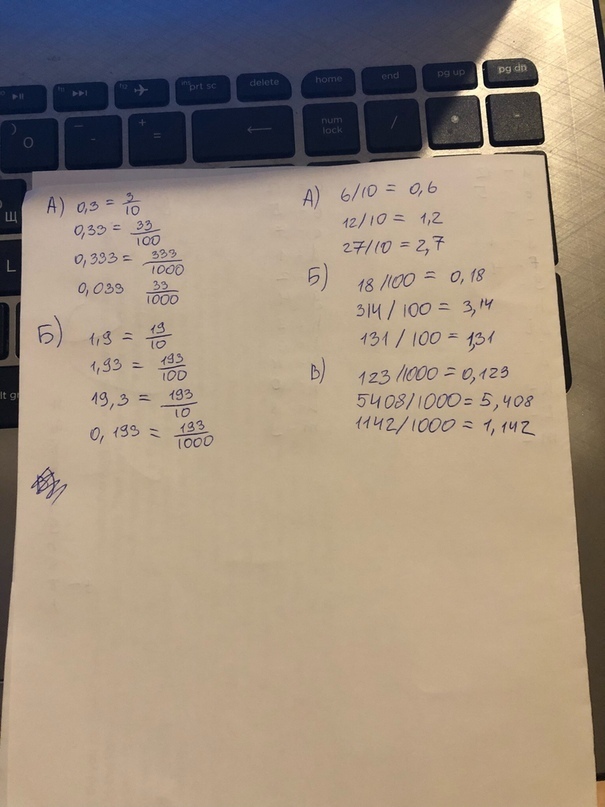 prt sc
delete
home
end
pg up
pg dn
num
lock
А) 0,3 = 3/10
0,33 = 33/100
0,333 = 333/1000
0,033 33/1000
Б) 1,9 = 19/10
1,93 = 193/100
19,3 = 193/10
0,193 = 193/1000
А) 6/10 = 0,6
12/10 = 1,2
27/10 = 2,7
Б) 18/100 = 0,18
314/100 = 3,14
131/100 = 1,31
В) 123/1000 = 0,123
5408/1000 = 5,408
1142/1000 = 1,142